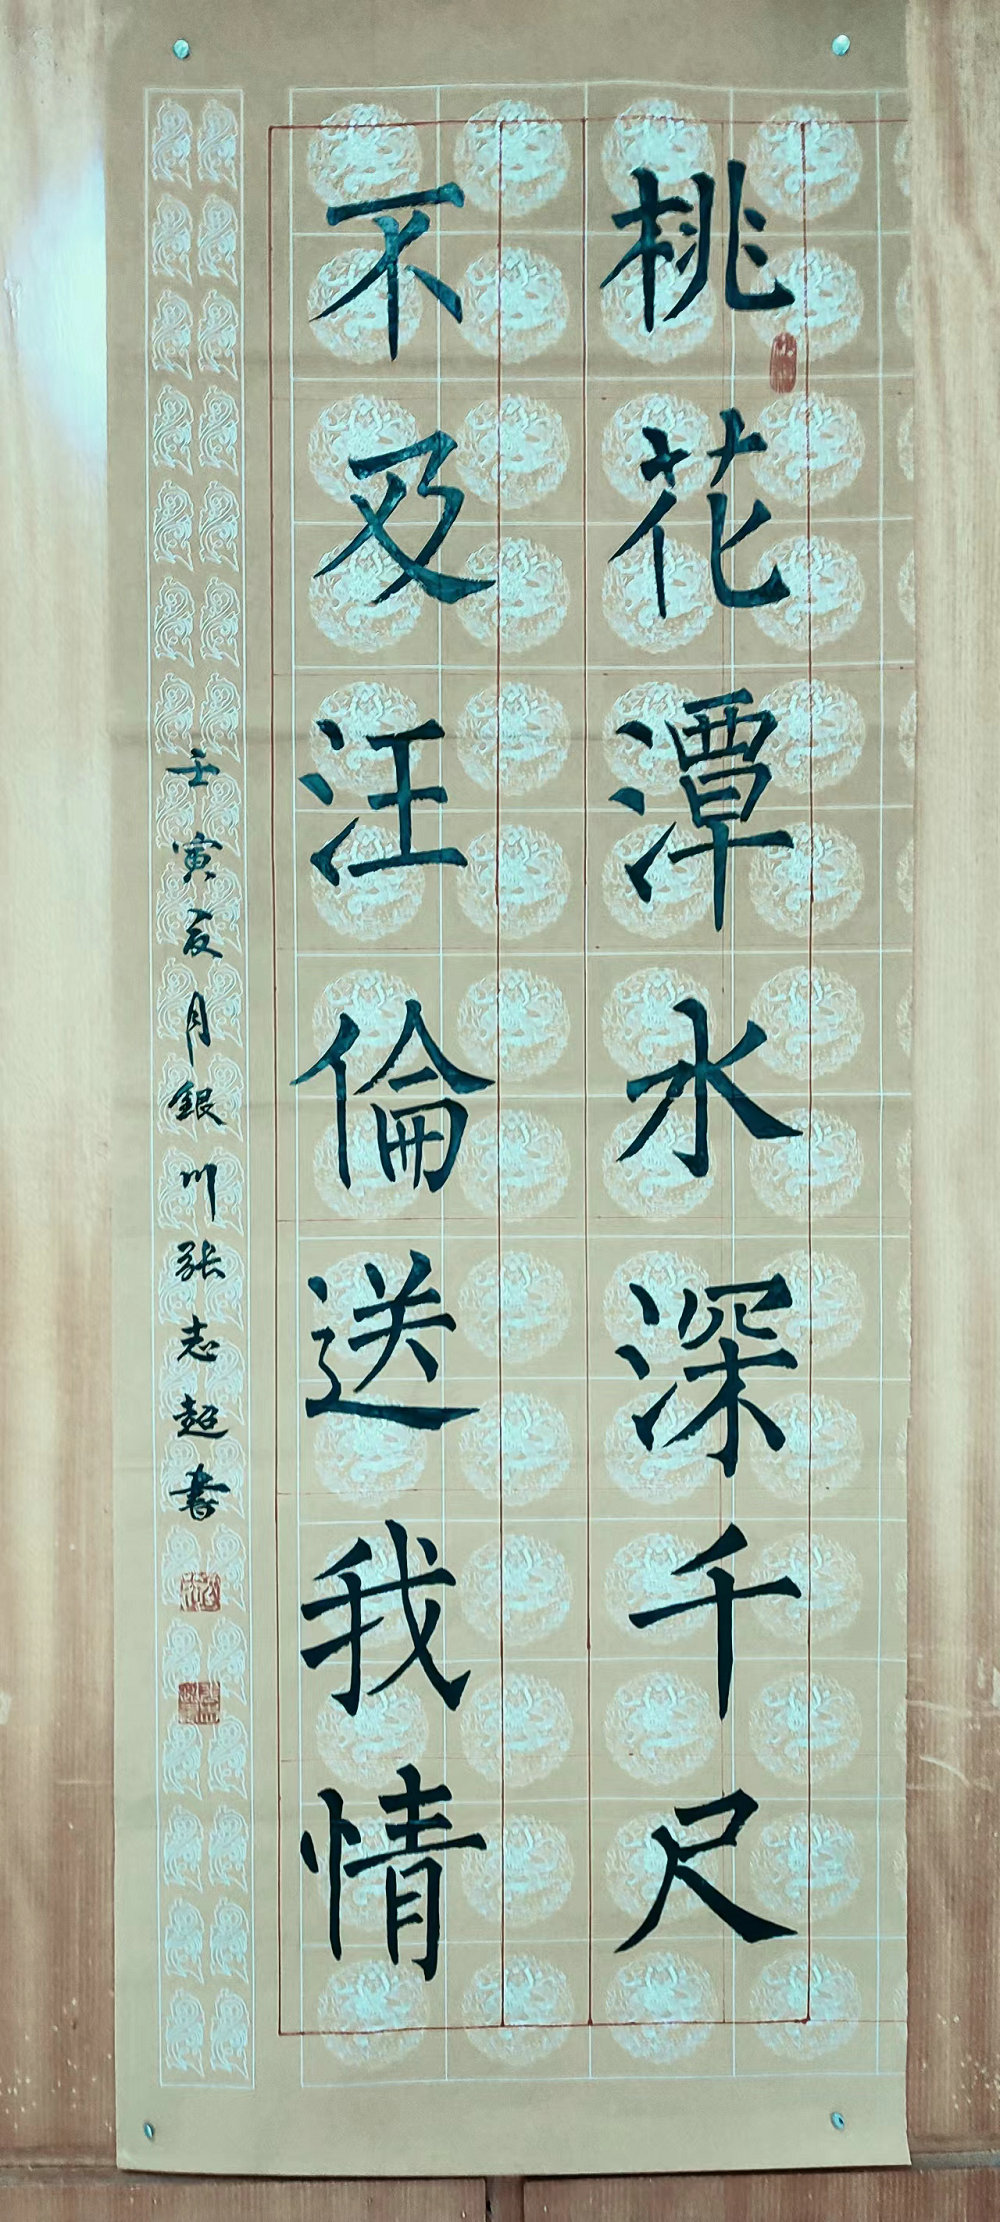 桃花潭水深千尺
不及汪倫送我情
壬寅夏月銀川張志超書